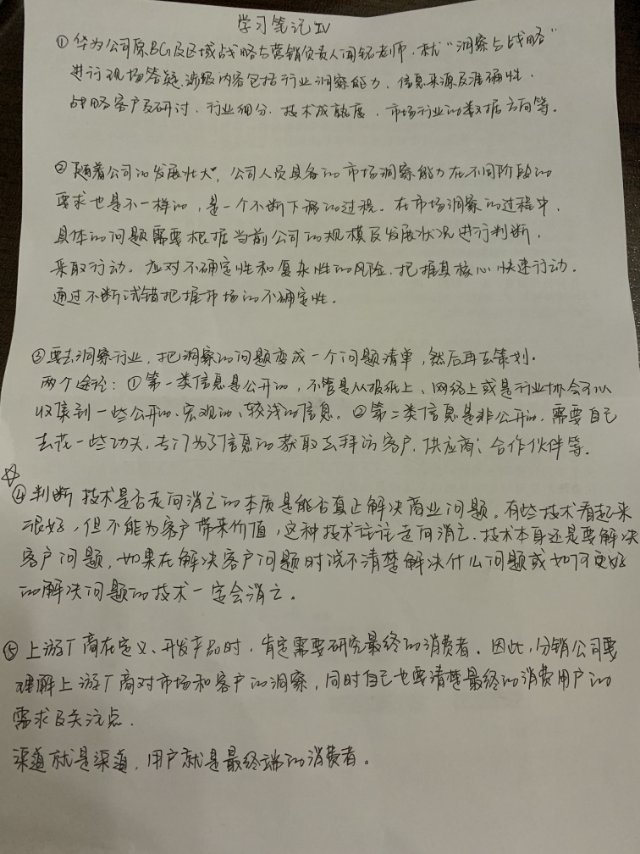 学习笔记Ⅳ
①华为公司原BG及区域战略与营销负责人闻铭老师,就“洞察与战略”
进行现场答疑,涉及内容包括行业洞察能力、信息来源及准确性、
战略客户及研讨、行业细分、技术成熟度、市场行业的数据方向等。
②随着公司的发展壮大,公司人员具备的市场洞察能力在不同阶段的
要求也是不一样的,是一个不断下探的过程。在市场洞察的过程中,
具体的问题需要根据当前公司的规模及发展状况进行判断,
采取行动。应对不确定性和复杂性的风险,把握其核心快速行动。
通过不断试错把握市场的不确定性。
③要去洞察行业,把洞察的问题变成一个问题清单,然后再去策划。
两个途径:①第一类信息是公开的,不管是从报纸上、网络上或是行业协会可以
收集到一些公开的、宏观的、较浅的信息。②第二类信息是非公开的,需要自己
去花一些功夫,专门为了信息的获取去拜访客户、供应商、合作伙伴等。
☆
④判断技术是否走向消亡的本质是能否真正解决商业问题。有些技术看起来
很好,但不能为客户带来价值,这种技术往往走向消亡。技术本身还是要解决
客户问题,如果在解决客户问题时说不清楚解决什么问题或如何更好
的解决问题的技术一定会消亡。
⑤上游厂商在定义、开发产品时,肯定需要研究最终的消费者。因此,分销公司要
理解上游厂商对市场和客户的洞察,同时自己也要清楚最终的消费用户的
需求及关注点.
渠道就是渠道,用户就是最终端的消费者。